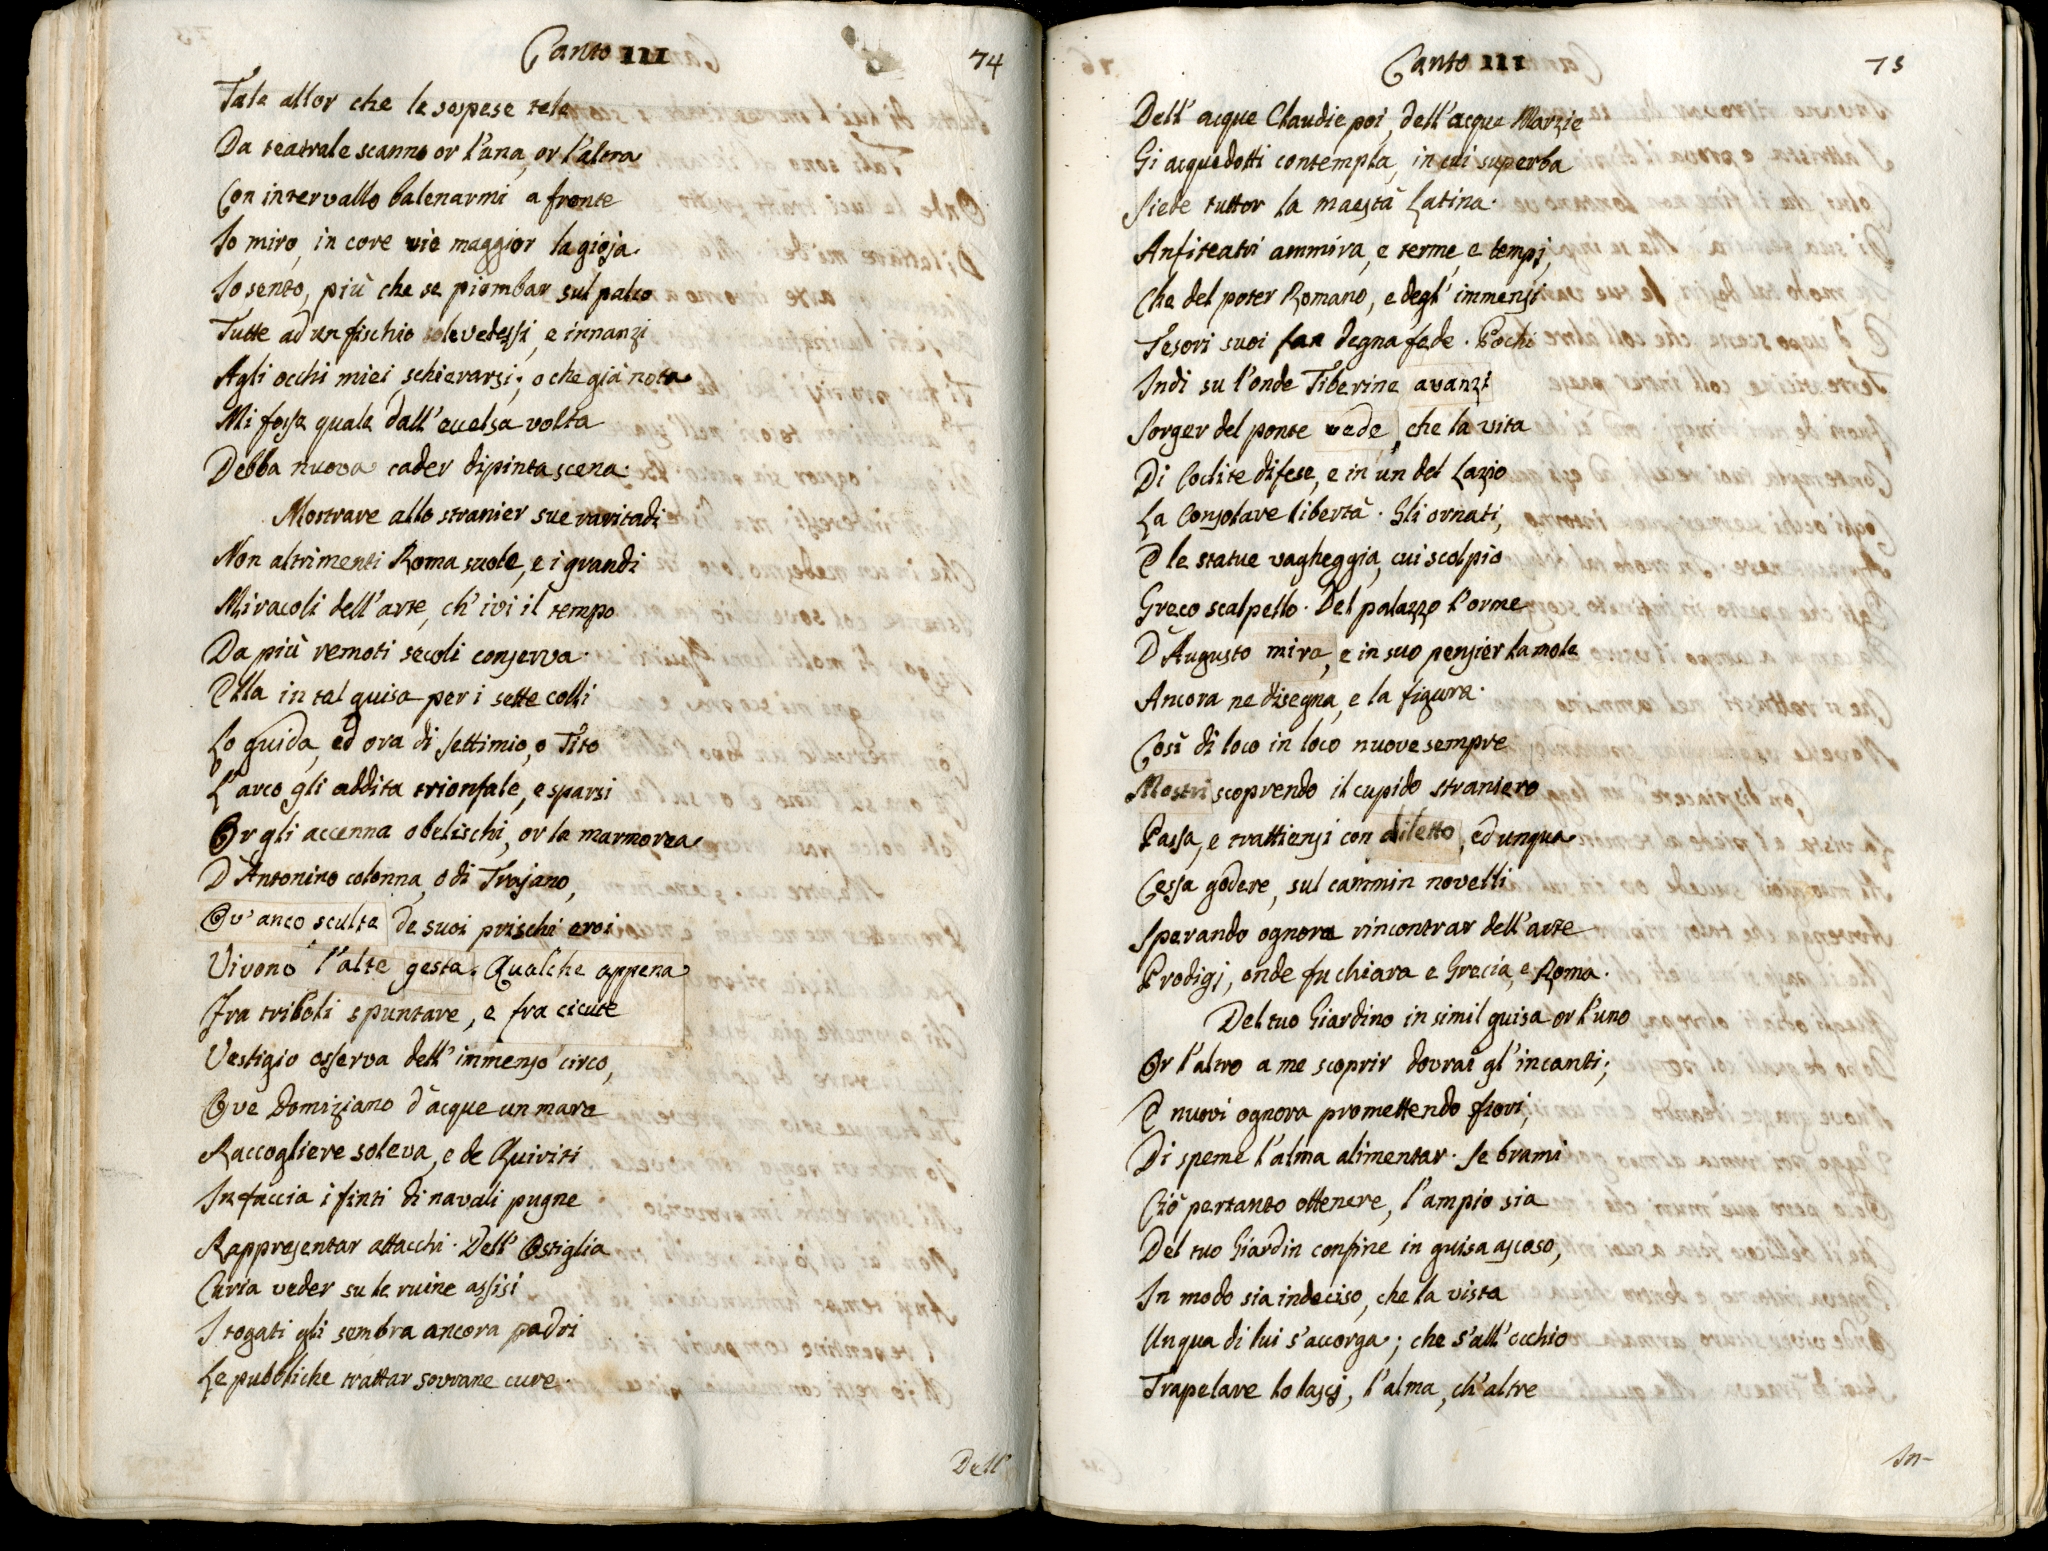 Canto III
74
Tale allor che le sospese tele
Da teatrale scanno or l'una, or l'altra
Con intervallo balenarmi a fronte
Io miro, in core vie maggior la gioja
Io sento, più che se piombar sul palco
Tutte ad un fischio le vedessi, e innanzi
Agli occhi miei schierarsi; o che già nota
Mi fosse quale dall'eccelsa volta
Debba nuova cader dipinta scena.
Mostrare allo stranier sue raritadi
Non altrimenti Roma suole, e i grandi
Miracoli dell'arte, ch'ivi il tempo
Da più remoti secoli conserva.
Ella in tal guisa per i sette colli
Lo guida, ed ora di Settimio, o Tito
L'arco gli addita trionfale, e sparsi
Or gli accenna obelischi, or la marmorea
D'Antonino colonna, o di Trajano,
Ov'anco sculta de suoi prischi eroi
Vivono l'alte gesta. Qualche appena
Fra triboli spuntare, e fra cicute
Vestigio osserva dell'immenso circo,
Ove Domiziano d'acque un mare
Raccogliere soleva, e de Quiriti
In faccia i finti di navali pugne
Rappresentar attacchi. Dell'Ostiglia
Curia veder su le ruine assisi
I togati gli sembra ancora padri
Le pubbliche trattar sovrane cure.
Dell'
Canto III
75
Dell'acque Claudie poi, dell'acque Marzie
Gi acquedotti contempla, in cui superba
Siede tuttor la maestà Latina.
Anfiteatri ammira, e terme, e tempj,
Che del poter Romano, e degl'immensi
Tesori suoi fan degna fede. Pochi
Indi su l'onde Tiberine avanzi
Sorger del ponte vede, che la vita
Di Coclite difese, e in un del Lazio
La Consolare libertà. Gli ornati,
E le statue vagheggia, cui scolpio
Greco scalpello. Del palazzo l'orme
D'Augusto mira, e in suo pensier la mole
Ancora ne disegna, e la figura.
Così di loco in loco nuove sempre
Mostri scoprendo il cupido straniero
Passa, e trattiensi con diletto, ed unqua
Cessa godere, sul cammin novelli
Sperando ognora rincontrar dell'arte
Prodigj, onde fu chiara e Grecia, e Roma.
Del tuo Giardino in simil guisa or l'uno
Or l'altro a me scoprir dovrai gl'incanti;
E nuovi ognora promettendo fiori,
Di speme l'alma alimentar. Se brami
Ciò pertanto ottenere, l'ampio sia
Del tuo Giardin confine in guisa ascoso,
In modo sia indeciso, che la vista
Unqua di lui s'accorga; che s'all'occhio
Trapelare lo lascj, l'alma, ch'altre
In-